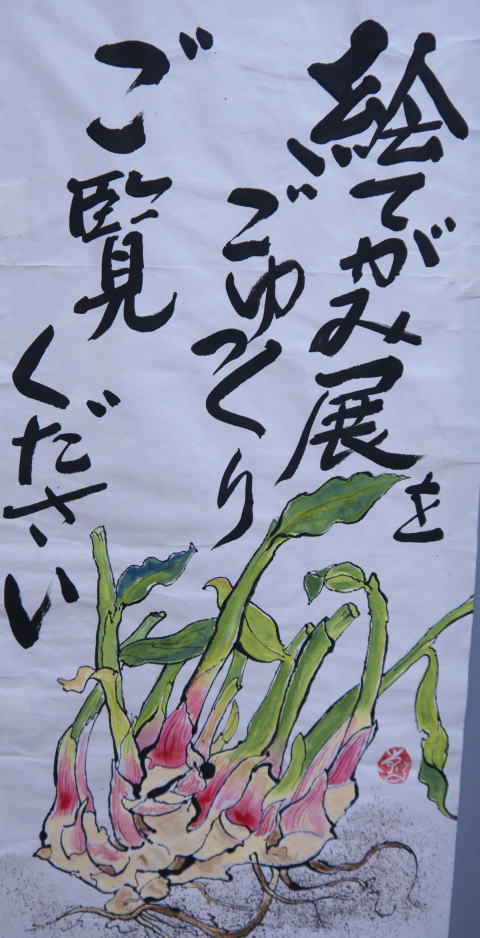 絵てがみ展を
ごゆっくり
ご覧
ください